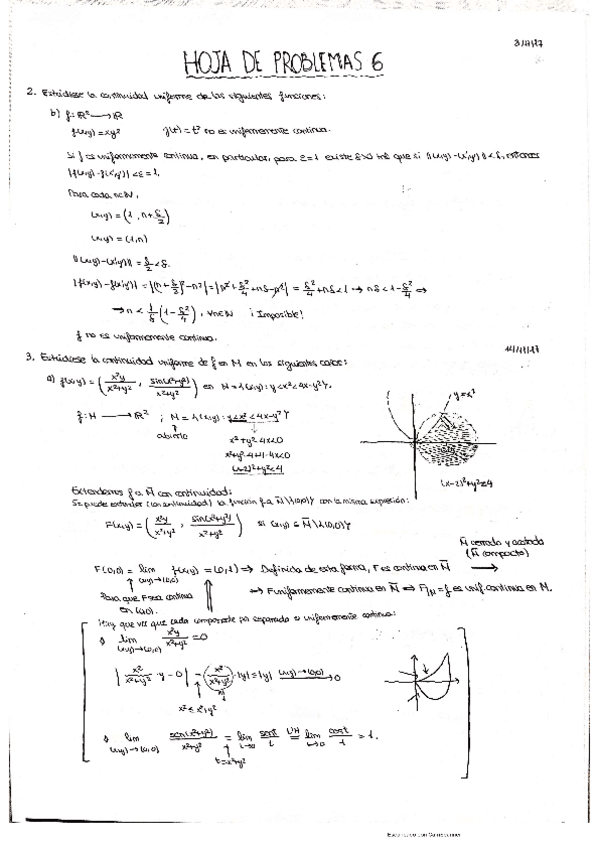 3/11/17
HOJA DE PROBLEMAS 6
2. Estúdiese la continuidad uniforme de las siguientes funciones:
b) f: ℝ² → ℝ
f(x,y) = xy² f(t) = t² no es uniformemente continua.
Si f es uniformemente continua, en particular, para ε=1 existe δ>0 tal que si ||(x,y)-(x',y')|| < δ, entonces
|f(x,y)-f(x',y')| < ε = 1.
Para cada n∈ℕ,
(x,y) = (1, n+δ/2)
(x,y) = (1,n)
||(x,y)-(x',y')|| = δ/2 < δ.
|f(x,y)-f(x',y')| = |(n+δ/2)²-n²| = |n²+δ²/4+nδ-n²| = δ²/4+nδ < 1 → nδ < 1-δ²/4 ⇔
→ n < 1/δ (1-δ²/4), ∀n∈ℕ ¡Imposible!
f no es uniformemente continua.
3. Estúdiese la continuidad uniforme de f en M en los siguientes casos:
a) f(x,y) = (x²y/(x²+y²), sin(x²+y²)/(x²+y²)) en M = {(x,y): y<x²<4x-y²}.
f: M → ℝ² ; M = {(x,y): y<x²<4x-y²}
abierto
x²+y²-4x<0
x²+y²-4+4-4x<0
(x-2)²+y²<4
y=x²
(x-2)²+y²=4
Extendemos f a M̄ con continuidad:
Se puede extender (con continuidad) la función f a M̄\{(0,0)} con la misma expresión:
F(x,y) = (x²y/(x²+y²), sin(x²+y²)/(x²+y²)) si (x,y) ∈ M̄\{(0,0)}
M̄ cerrado y acotado
(M̄ compacto)
F(0,0) = lim (x,y)→(0,0) f(x,y) = (0,1) ⇒ Definida de esta forma, F es continua en M̄ →
Para que F sea continua en (0,0).
→ F uniformemente continua en M̄ ⇔ F|M = f es unif. continua en M.
Hay que ver que cada componente por separado es uniformemente continua:
lim (x,y)→(0,0) x²y/(x²+y²) = 0
|x²/(x²+y²) · y - 0| = (x²/(x²+y²)) · |y| ≤ |y| (x,y)→(0,0) → 0
x² ≤ x²+y²
lim (x,y)→(0,0) sen(x²+y²)/(x²+y²) = lim t→0 sent/t = L'H lim t→0 cost/1 = 1.
t=x²+y²
Escaneado con CamScanner